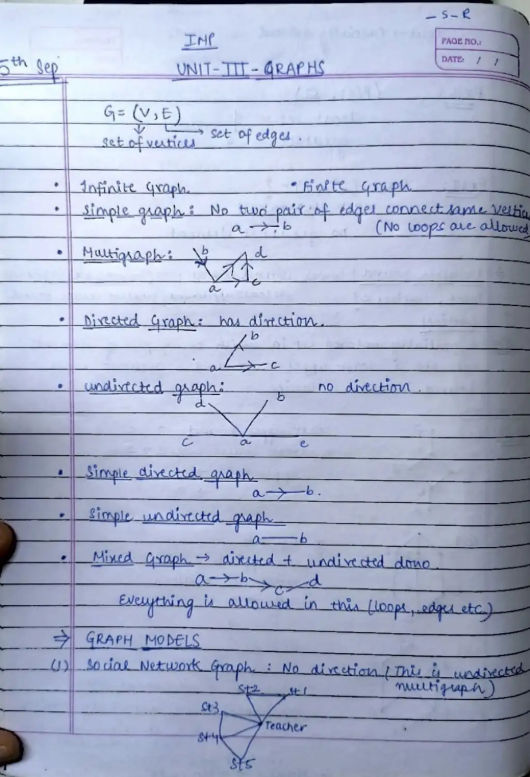 - S - R
IMP
PAGE NO.:
DATE: / /
5th Sep
UNIT-III-GRAPHS
G = (V, E)
set of vertices → set of edges.
• Infinite Graph. • Finite Graph
• Simple graph: No two pair of edges connect same vertic
a → b (No loops are allowed
• Multigraph: b d
a c
• Directed Graph: has direction.
b
a c
• undirected graph: no direction.
d b
c a e
• Simple directed graph
a → b.
• Simple undirected graph
a — b
• Mixed Graph → directed + undirected dono.
a → b c d
Everything is allowed in this (loops, edges etc.)
⇒ GRAPH MODELS
(1) Social Network Graph: No direction (This is undirected
multigraph)
st2 st1
st3
Teacher
st4
st5